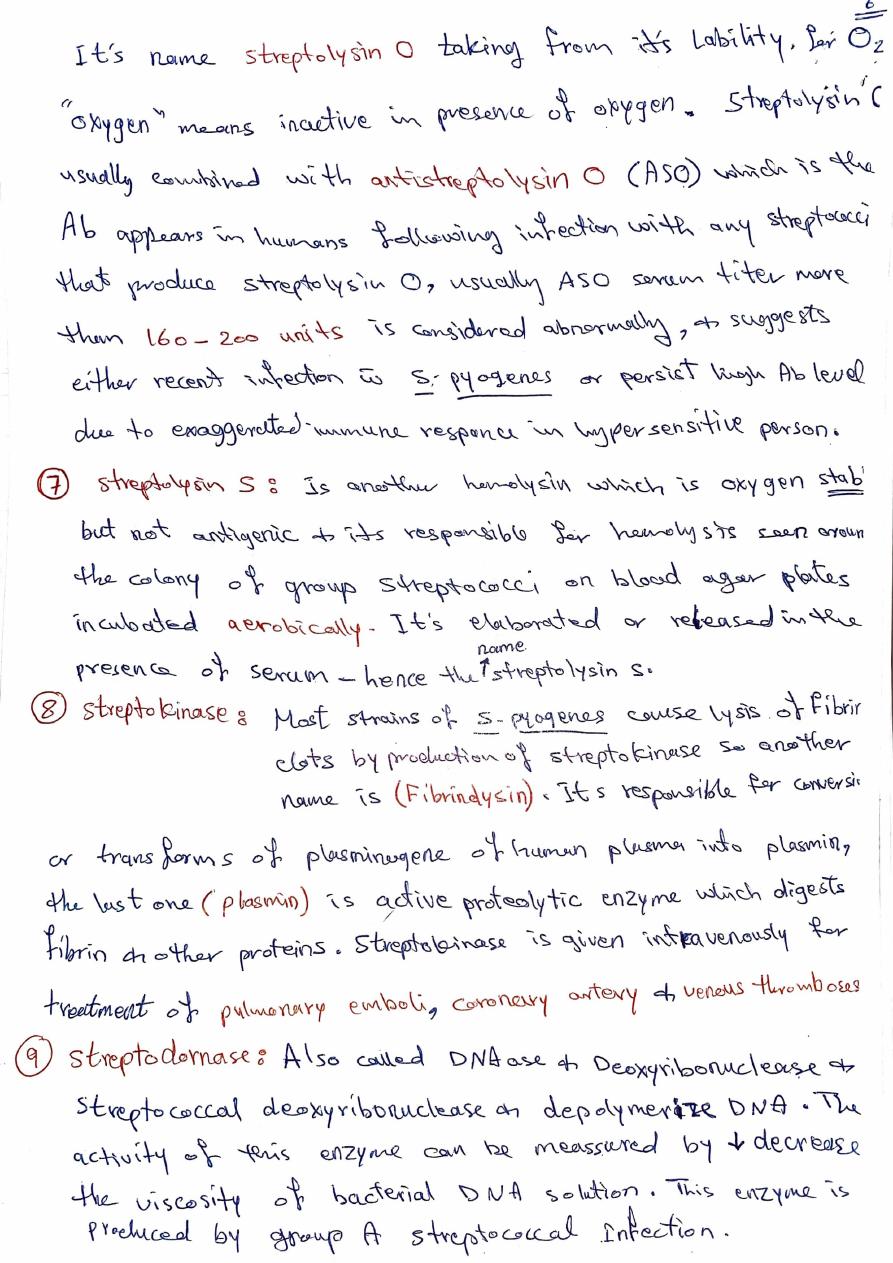 6
It's name streptolysin O taking from it's Lability, for O2
"oxygen" means inactive in presence of oxygen. Streptolysin
usually combined with antistreptolysin O (ASO) which is the
Ab appears in humans following infection with any streptococci
that produce streptolysin O, usually ASO serum titer more
than 160-200 units is considered abnormally, & suggests
either recent infection w̄ S. pyogenes or persist high Ab level
due to exaggerated immune responce in hypersensitive person.
⑦ streptolysin S: Is another hemolysin which is oxygen stab
but not antigenic & its responsible for hemolysis seen aroun
the colony of group streptococci on blood agar plates
incubated aerobically. It's elaborated or released in the
presence of serum - hence the ↑name streptolysin s.
⑧ streptokinase: Most strains of S-pyogenes cause lysis of Fibrin
clots by production of streptokinase so another
name is (Fibrindysin). It s responsible for conversi
or transforms of plasminogene of human plasma into plasmin,
the last one (plasmin) is active proteolytic enzyme which digests
fibrin & other proteins. Streptokinase is given intravenously for
treatment of pulmonary emboli, coronary artery & venous thromboses
⑨ streptodornase: Also called DNAase & Deoxyribonuclease &
Streptococcal deoxyribonuclease & depolymerize DNA. The
activity of this enzyme can be meassured by ↓ decrease
the viscosity of bacterial DNA solution. This enzyme is
produced by group A streptococcal Infection.